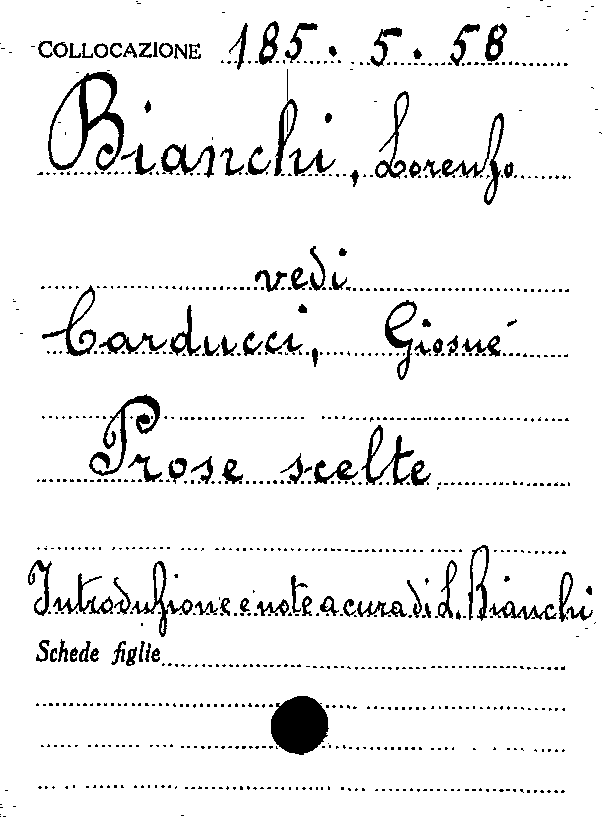 COLLOCAZIONE 185.5.58
Bianchi, Lorenzo
vedi
Carducci, Giosué
Prose scelte
Introduzione e note a cura di L. Bianchi
Schede figlie